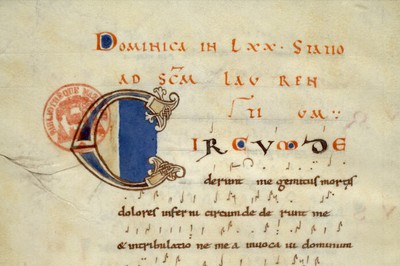 DOMINICA IN LXX. STATIO
AD SCM LAUREN
TIUM
CIRCUMDE
derunt me gemitus mortis
dolores inferni circumde de runt me
& intribulatio ne me a invoca vi dominum
BIBLIOTHÈQUE